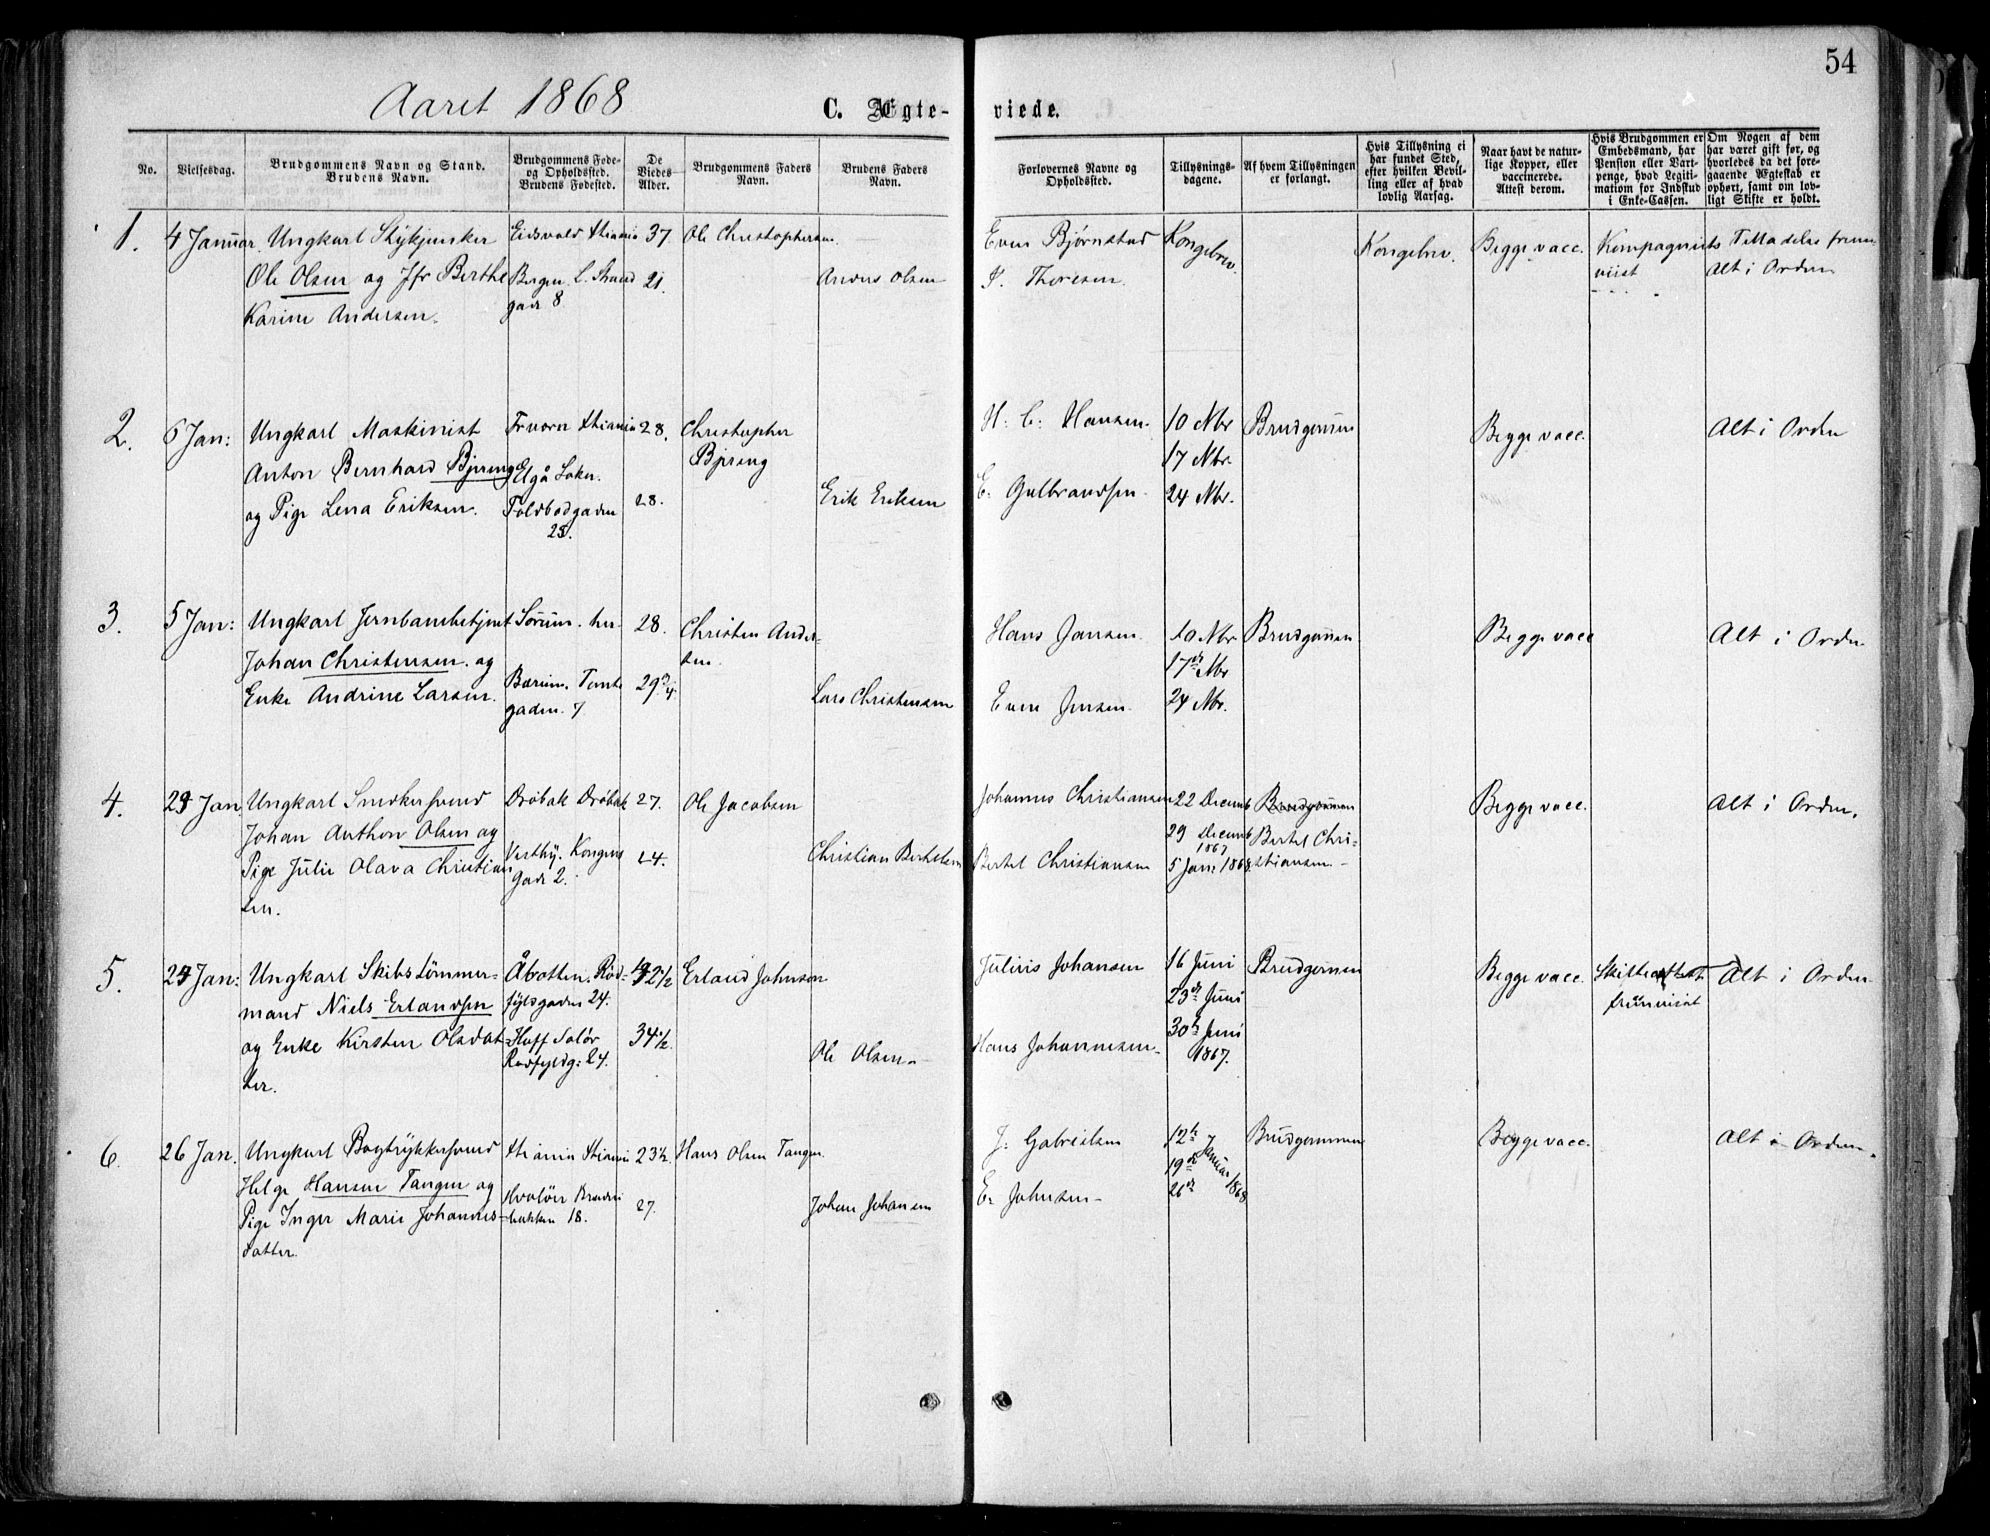 54
Aaret 1868
C. Ægte-
viede.
No.
Vielsesdag.
Brudgommens Navn og Stand.
Brudens Navn.
Brudgommens Føde-
og Opholdssted.
Brudens Fødested.
De
Viedes
Alder.
Brudgommens Faders
Navn.
Brudens Faders
Navn.
Forlovernes Navne og
Opholdssted.
Tillysnings-
dagene.
Af hvem Tillysningen
er forlangt.
Hvis Tillysning ei
har fundet Sted,
efter hvilken Bevil-
ling eller af hvad
lovlig Aarsag.
Naar havt de natur-
lige Kopper, eller
vaccinerede.
Attest derom.
Hvis Brudgommen er
Embedsmand, har
Pension eller Vart-
penge, hvad Legiti-
mation for Indskud
i Enke-Cassen.
Om Nogen af dem
har været gift før, og
hvorledes da det fore-
gaaende Ægteskab er
ophørt, samt om lov-
ligt Skifte er holdt.
1.
4 Januar
Ungkarl Stykjunker
Ole Olsen og Jfr Berthe
Karine Andersen.
Eidsvold Xtiania
Bergen L. Strand
gade 8
37
21.
Ole Christophersen.
Anders Olsen
Even Bjørnstad
P. Thoresen.
Kongebrev.
Kongebrev.
Begge vacc.
Kompagniets
viist
Tilladelse frem
Alt i Orden
2.
6 Jan:
Ungkarl Maskinist
Anton Bernhard Bjering
og Pige Lena Eriksen.
Xtiania
Elgå Sokn.
Toldbodgaden
25.
28.
28.
Christopher
Bjering
Erik Eriksen
H. C. Hansen.
E. Gulbrandsen.
10 Nbr
17 Nbr.
24 Nbr.
Brudgommen
Begge vacc.
Alt i Orden
3.
5 Jan:
Ungkarl Jernbanebetjent
Johan Christensen. og
Enke Andrine Larsen.
Sørum. her
Bærum. Tomte
gaden. 7
28.
29 3/4.
Christen Ander-
sen.
Lars Christensen
Hans Jansen.
Even Jensen.
10 Nbr
17de Nbr
24 Nbr.
Brudgommen
Begge vacc
Alt i Orden
4.
Jan
Ungkarl Snedkersvend
Johan Anthon Olsen og
Pige Julie Olava Christian
sen.
Drøbak Drøbak
Vestby. Kongens
Gade 2.
27.
24.
Ole Jacobsen
Christian Bertelsen
Johannes Christiansen
Bertel Christiansen
22 Decemb
29 Decemb
1867
5 Jan: 1868.
Brudgommen
Bertel Chri-
stiansen.
Begge vacc.
Alt i Orden.
5.
Jan:
Ungkarl Skibstømmer-
mand Niels Erlandsen
og Enke Kirsten Olsdat-
ter.
Åbratten. Rød-
fyldsgaden 24.
Hoff Solør
Rødfyldg: 24.
42 1/2
34 1/2
Erland Johnson
Ole Olsen.
Julius Johansen
Hans Johannesen.
16 Juni
23de Juni
30te Juni
1867.
Brudgommen
Begge vacc.
Skifteattest
fremviist
Alt i Orden
6.
26 Jan.
Ungkarl Bogtrykkersvend
Helge Hansen Tangen og
Pige Inger Marie Johannes-
datter.
Xtiania Xtiania
Hvaløer
bakken 18.
23 1/2.
27.
Hans Olsen Tangen.
Johan Johansen
J. Gabrielsen
E. Johnsen
12te
19de
26de
Januar 1868
Brudgommen
Begge vacc.
Alt i Orden.